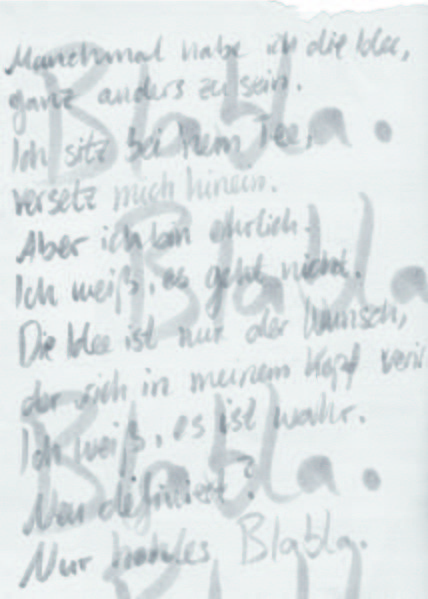 Manchmal habe ich die Idee,
ganz anders zu sein.
Ich sitz bei 'nem Tee,
versetz mich hinein.
Aber ich bin ehrlich.
Ich weiß, es geht nicht.
Die Idee ist nur der Wunsch,
der sich in meinem Kopf
Ich weiß, es ist wahr.
Neu definiert?
Nur hohles Blabla.
Blabla.
Blabla
Blabla.